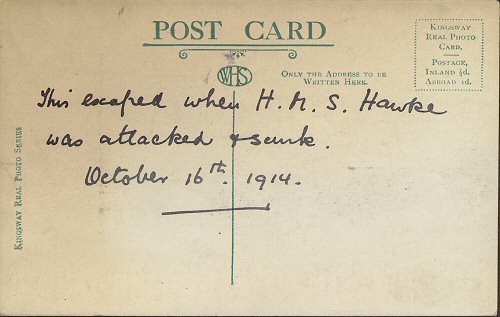 POST CARD
KINGSWAY
REAL PHOTO
CARD.
POSTAGE,
INLAND ½d.
ABROAD 1d.
WHS
ONLY THE ADDRESS TO BE
WRITTEN HERE.
This escaped when H.M.S. Hawke
was attacked & sunk.
October 16th. 1914.
KINGSWAY REAL PHOTO SERIES